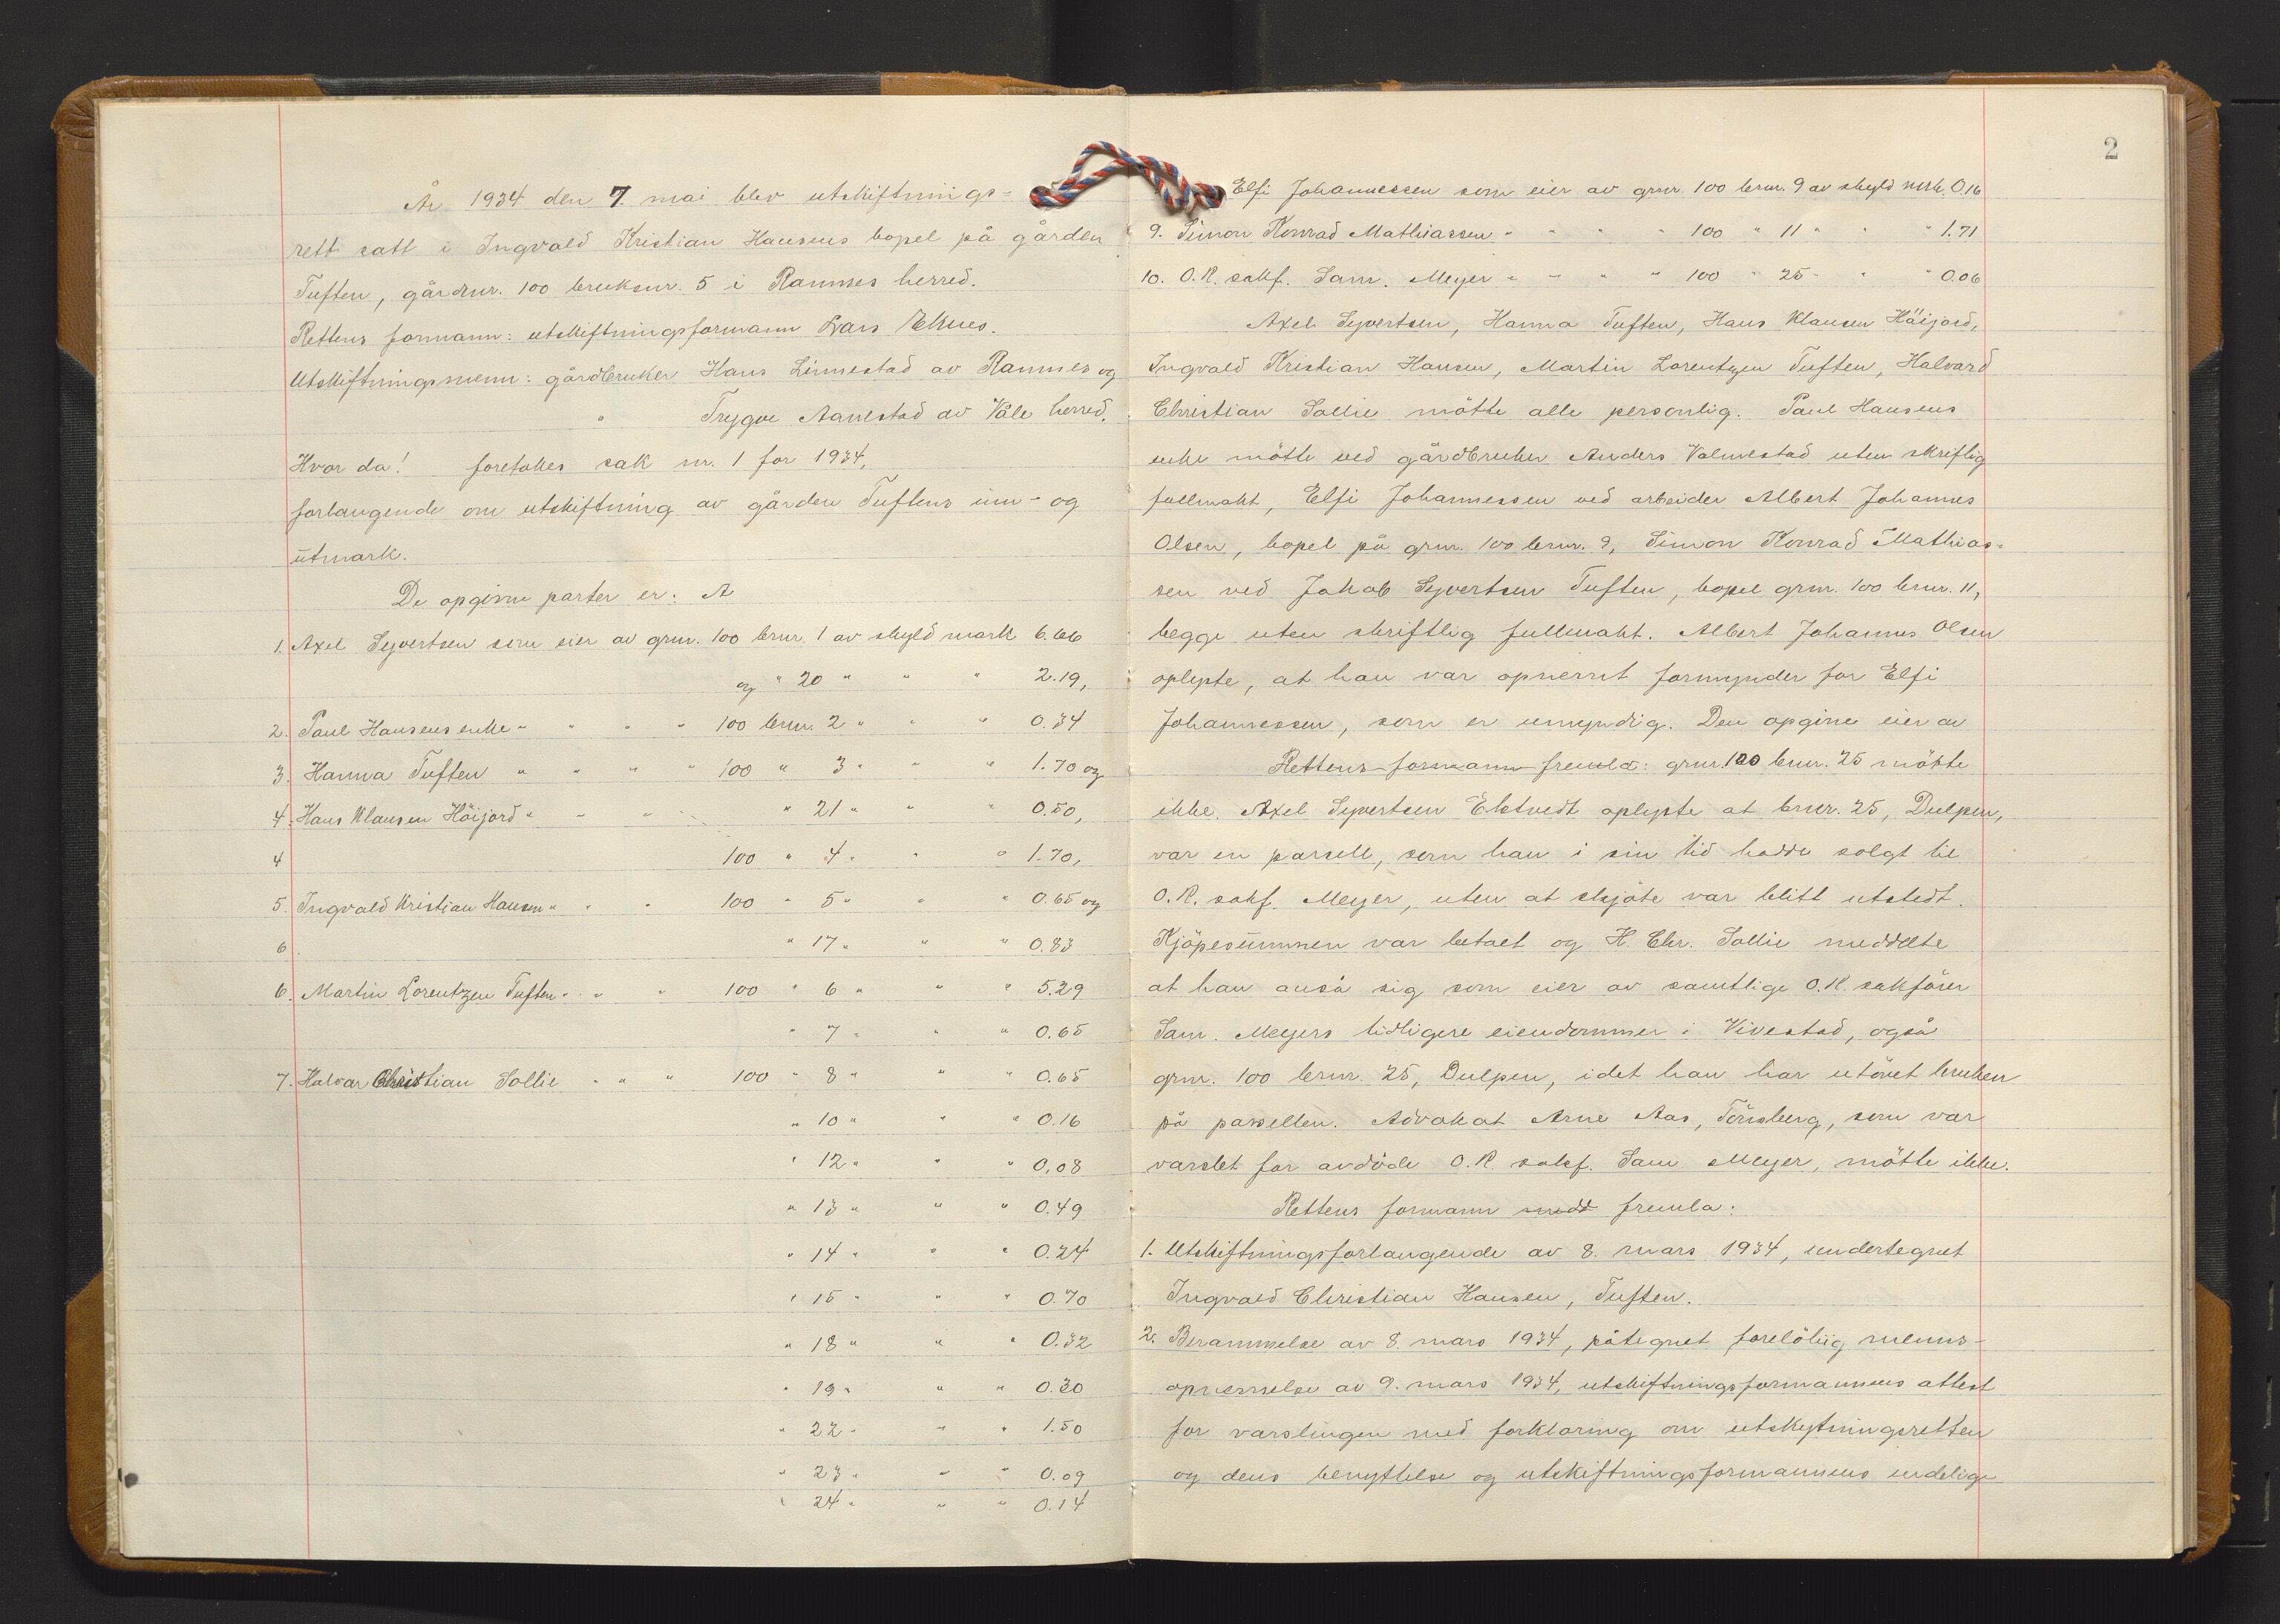 År 1934 den 7. mai blev utskiftnings-
rett satt i Ingvald Kristian Hansens bopel på gården
Tuften, gårdnr. 100 bruksnr. 5 i Ramnes herred.
Rettens formann: utskiftningsformann Lars Eknes.
Utskiftningsmenn: gårdbruker Hans Linnestad av Ramnes og
" Trygve Aanestad av Våle herred.
Hvor da! foretokes sak nr. 1 for 1934,
forlangende om utskiftning av gården Tuftens inn- og
utmark.
De opgivne parter er: A
1. Axel Syvertsen som eier av grnr. 100 brnr. 1 av skyld mark 6.66
og " 20 " " " 2.19,
2. Paul Hansens enke " " " " 100 brnr. 2 " " " 0.34
3. Hanna Tuften " " " " 100 " 3 " " " 1.70 og
4. Hans Klausen Höijord " " " " 21 " " " 0.50,
4 100 " 4 " " " 1.70,
5. Ingvald Kristian Hansen " " " 100 " 5 " " " 0.65 og
6. " 17 " " " 0.83
6. Martin Lorentzen Tuften " " " 100 " 6 " " " 5.29
" 7 " " " 0.65
7. Halvar Christian Sollie " " " 100 " 8 " " " 0.65
" 10 " " " 0.16
" 12 " " " 0,08
" 13 " " " 0.49
" 14 " " " 0.24
" 15 " " " 0.70
" 18 " " " 0.32
" 19 " " " 0.30
" 22 " " " 1.50
" 23 " " " 0.09
" 24 " " " 0.14
2
Elfi Johannessen som eier av grnr. 100 brnr. 9 av skyld mrk. 0.16
9. Simon Konrad Mathiassen " " " " 100 " 11 " " " 1.71
10. O.R. sakf. Sam. Meyer " " " " 100 " 25 " " " 0.06
Axel Syvertsen, Hanna Tuften, Hans Klausen Höijord,
Ingvald Kristian Hansen, Martin Lorentzen Tuften, Halvard
Christian Sollie mötte alle personlig. Paul Hansens
enke mötte ved gårdbruker Anders Valmestad uten skriftlig
fullmakt, Elfi Johannessen ved arbeider Albert Johannes
Olsen, bopel på grnr. 100 brnr. 9, Simon Konrad Mathias-
sen ved Jakob Syvertsen Tuften, bopel grnr. 100 brnr. 11,
begge uten skriftlig fullmakt. Albert Johannes Olsen
oplyste, at han var opnevnt formynder for Elfi
Johannessen, som er umyndig. Den opgivne eier av
Rettens formann fremla: grnr. 100 brnr. 25 mötte
ikke. Axel Syvertsen Ekstvedt oplyste at brnr. 25, Dulpen,
var en parsell, som han i sin tid hadde solgt til
O.R. sakf. Meyer, uten at skjöte var blitt utstedt.
Kjöpesummen var betalt og H. Chr. Sollie meddelte
at han anså sig som eier av samtlige O.R. sakförer
Sam. Meyers tidligere eiendommer i Vivestad, også
grnr. 100 brnr. 25, Dulpen, idet han har utövet bruken
på parsellen. Advokat Arne Aas, Tönsberg, som var
varslet for avdöde O.R. sakf. Sam. Meyer, mötte ikke.
Rettens formann medd fremla:
1. Utskiftningsforlangende av 8. mars 1934, undertegnet
Ingvald Christian Hansen, Tuften.
2. Berammelse av 8. mars 1934, påtegnet forelöbig menns-
opnevnelse av 9. mars 1934, utskiftningsformannens attest
for varslingen med forklaring om utskytningsretten
og dens benyttelse og utskiftningsformannens endelige